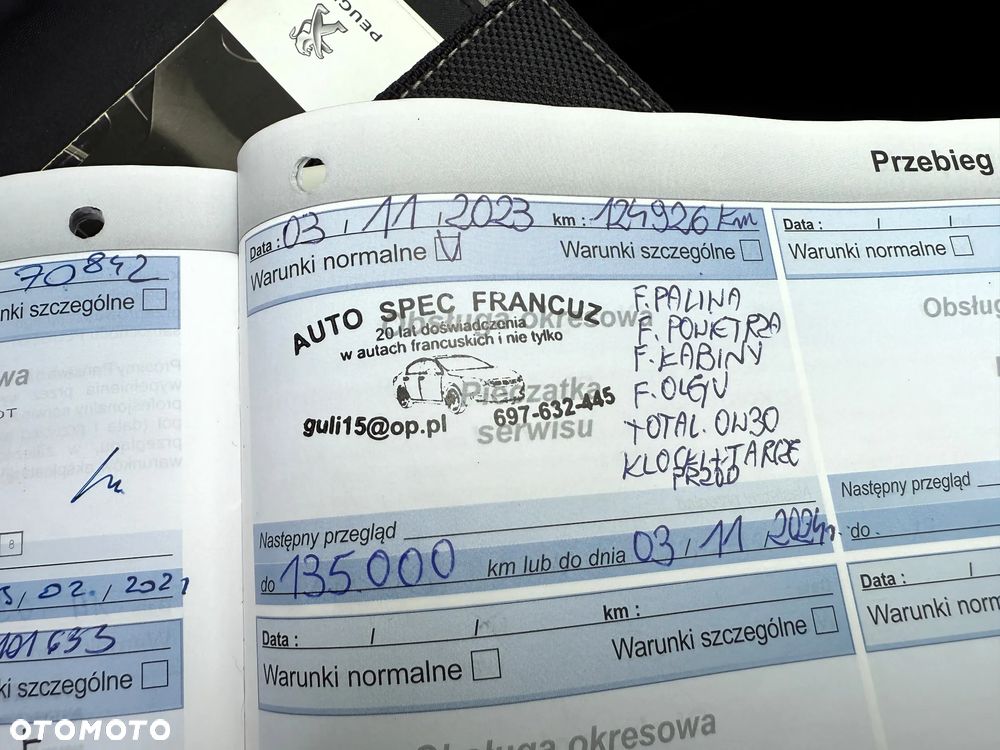 PEUG
Przebieg
70842
nki szczególne
wa
8
02. 2021
101633
ki szczególne
Data : 03 / 11 / 2023 km : 124926 km
Warunki normalne V Warunki szczególne
AUTO SPEC FRANCUZ
20 lat doświadczenia
w autach francuskich i nie tylko
guli15@op.pl 697-632-445
Obsługa okresowa
Pieczątka
serwisu
F. PALIWA
F. POWIETRZA
F. KABINY
F. OLEJU
TOTAL. OW30
KLOCKI + TARCZE
PRZÓD
Następny przegląd
do 135.000 km lub do dnia 03 / 11 / 2024r.
Data : / / km :
Warunki normalne Warunki szczególne
Obsługa okresowa
Data : / /
Warunki normalne
Obsług
Następny przegląd
do
Data : /
Warunki norm
OTOMOTO